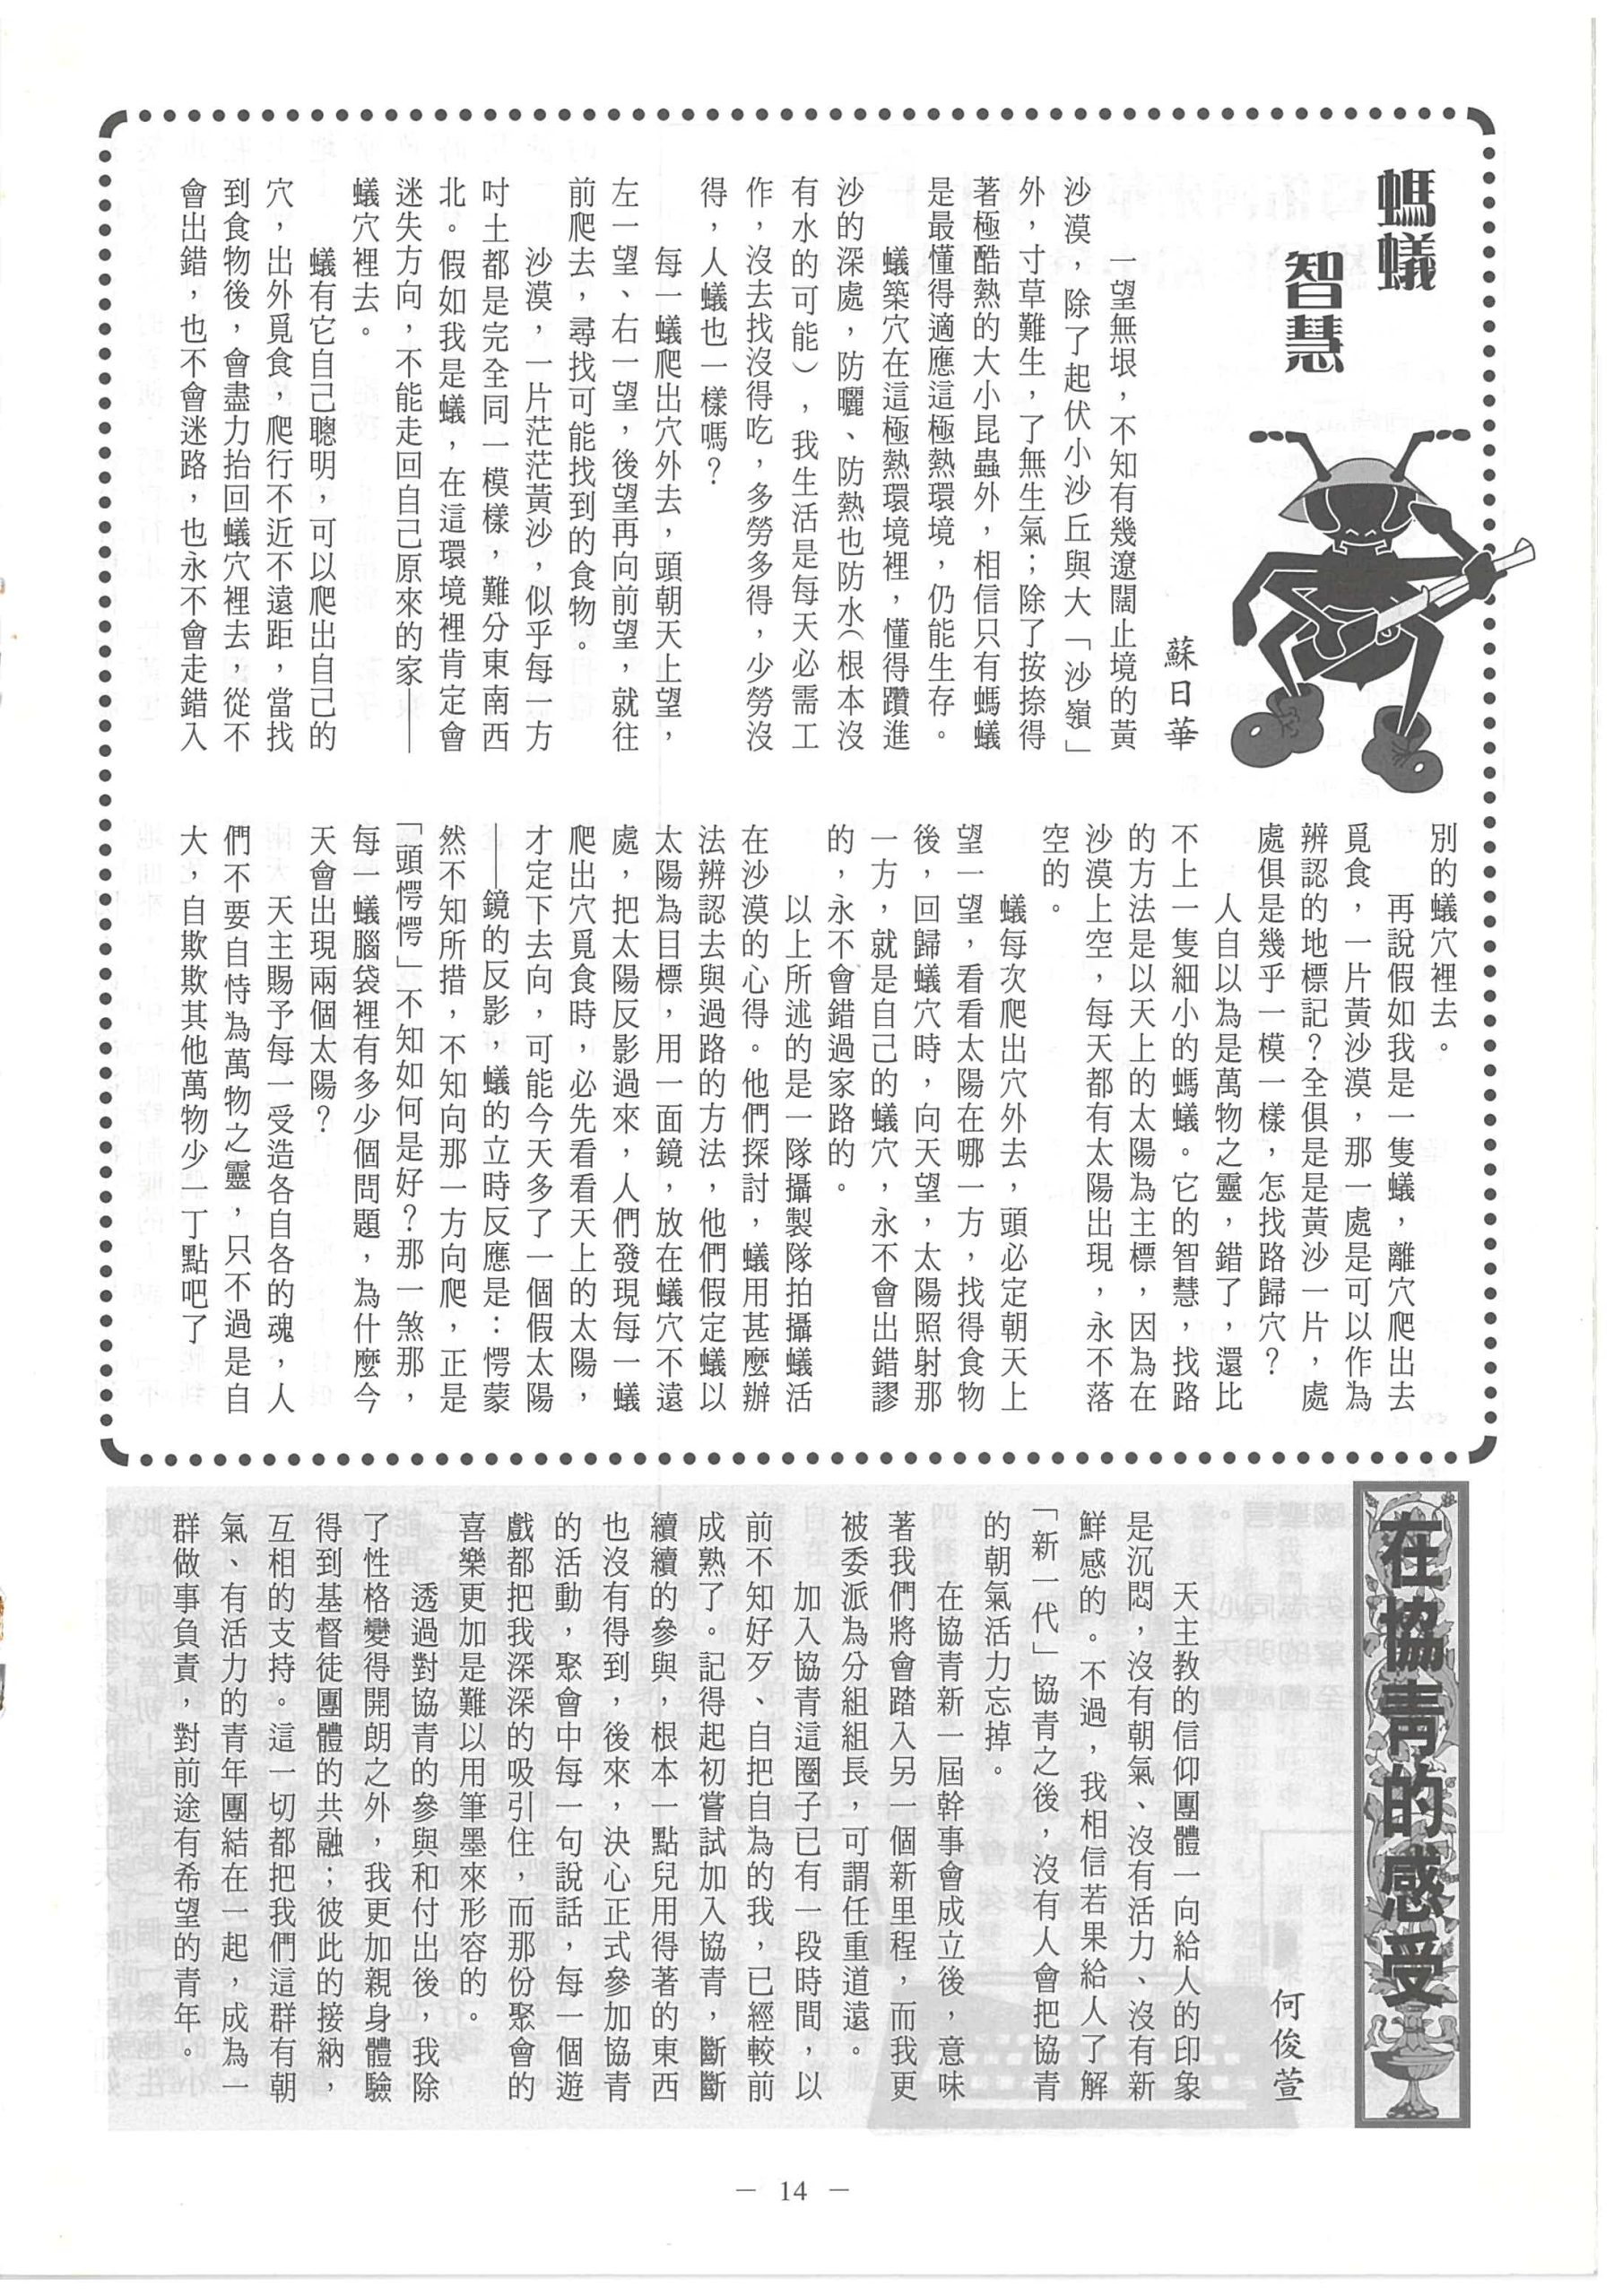 螞蟻
智慧
蘇日華
一望無垠，不知有幾遼闊止境的黃
沙漠，除了起伏小沙丘與大「沙嶺」
外，寸草難生，了無生氣；除了按捺得
著極酷熱的大小昆蟲外，相信只有螞蟻
是最懂得適應這極熱環境，仍能生存。
蟻築穴在這極熱環境裡，懂得躦進
沙的深處，防曬、防熱也防水（根本沒
有水的可能），我生活是每天必需工
作，沒去找沒得吃，多勞多得，少勞沒
得，人蟻也一樣嗎？
每一蟻爬出穴外去，頭朝天上望，
左一望、右一望，後望再向前望，就往
前爬去，尋找可能找到的食物。
沙漠，一片茫茫黃沙，似乎每一方
吋土都是完全同一模樣，難分東南西
北。假如我是蟻，在這環境裡肯定會
迷失方向，不能走回自己原來的家——
蟻穴裡去。
蟻有它自己聰明，可以爬出自己的
穴，出外覓食，爬行不近不遠距，當找
到食物後，會盡力抬回蟻穴裡去，從不
會出錯，也不會迷路，也永不會走錯入
別的蟻穴裡去。
再說假如我是一隻蟻，離穴爬出去
覓食，一片黃沙漠，那一處是可以作為
辨認的地標記？全俱是是黃沙一片，處
處俱是幾乎一模一樣，怎找路歸穴？
人自以為是萬物之靈，錯了，還比
不上一隻細小的螞蟻。它的智慧，找路
的方法是以天上的太陽為主標，因為在
沙漠上空，每天都有太陽出現，永不落
空的。
蟻每次爬出穴外去，頭必定朝天上
望一望，看看太陽在哪一方，找得食物
後，回歸蟻穴時，向天望，太陽照射那
一方，就是自己的蟻穴，永不會出錯謬
的，永不會錯過家路的。
以上所述的是一隊攝製隊拍攝蟻活
在沙漠的心得。他們探討，蟻用甚麼辦
法辨認去與過路的方法，他們假定蟻以
太陽為目標，用一面鏡，放在蟻穴不遠
處，把太陽反影過來，人們發現每一蟻
爬出穴覓食時，必先看看天上的太陽，
才定下去向，可能今天多了一個假太陽
——鏡的反影，蟻的立時反應是：愕蒙
然不知所措，不知向那一方向爬，正是
「頭愕愕」不知如何是好？那一煞那，
每一蟻腦袋裡有多少個問題，為什麼今
天會出現兩個太陽？
天主賜予每一受造各自各的魂，人
們不要自恃為萬物之靈，只不過是自
大，自欺欺其他萬物少一丁點吧了
在協青的感受
何俊萱
天主教的信仰團體一向給人的印象
是沉悶，沒有朝氣、沒有活力、沒有新
鮮感的。不過，我相信若果給人了解
「新一代」協青之後，沒有人會把協青
的朝氣活力忘掉。
在協青新一屆幹事會成立後，意味
著我們將會踏入另一個新里程，而我更
被委派為分組組長，可謂任重道遠。
加入協青這圈子已有一段時間，以
前不知好歹、自把自為的我，已經較前
成熟了。記得起初嘗試加入協青，斷斷
續續的參與，根本一點兒用得著的東西
也沒有得到，後來，決心正式參加協青
的活動，聚會中每一句說話，每一個遊
戲都把我深深的吸引住，而那份聚會的
喜樂更加是難以用筆墨來形容的。
透過對協青的參與和付出後，我除
了性格變得開朗之外，我更加親身體驗
得到基督徒團體的共融；彼此的接納，
互相的支持。這一切都把我們這群有朝
氣、有活力的青年團結在一起，成為一
群做事負責，對前途有希望的青年。
— 14 —